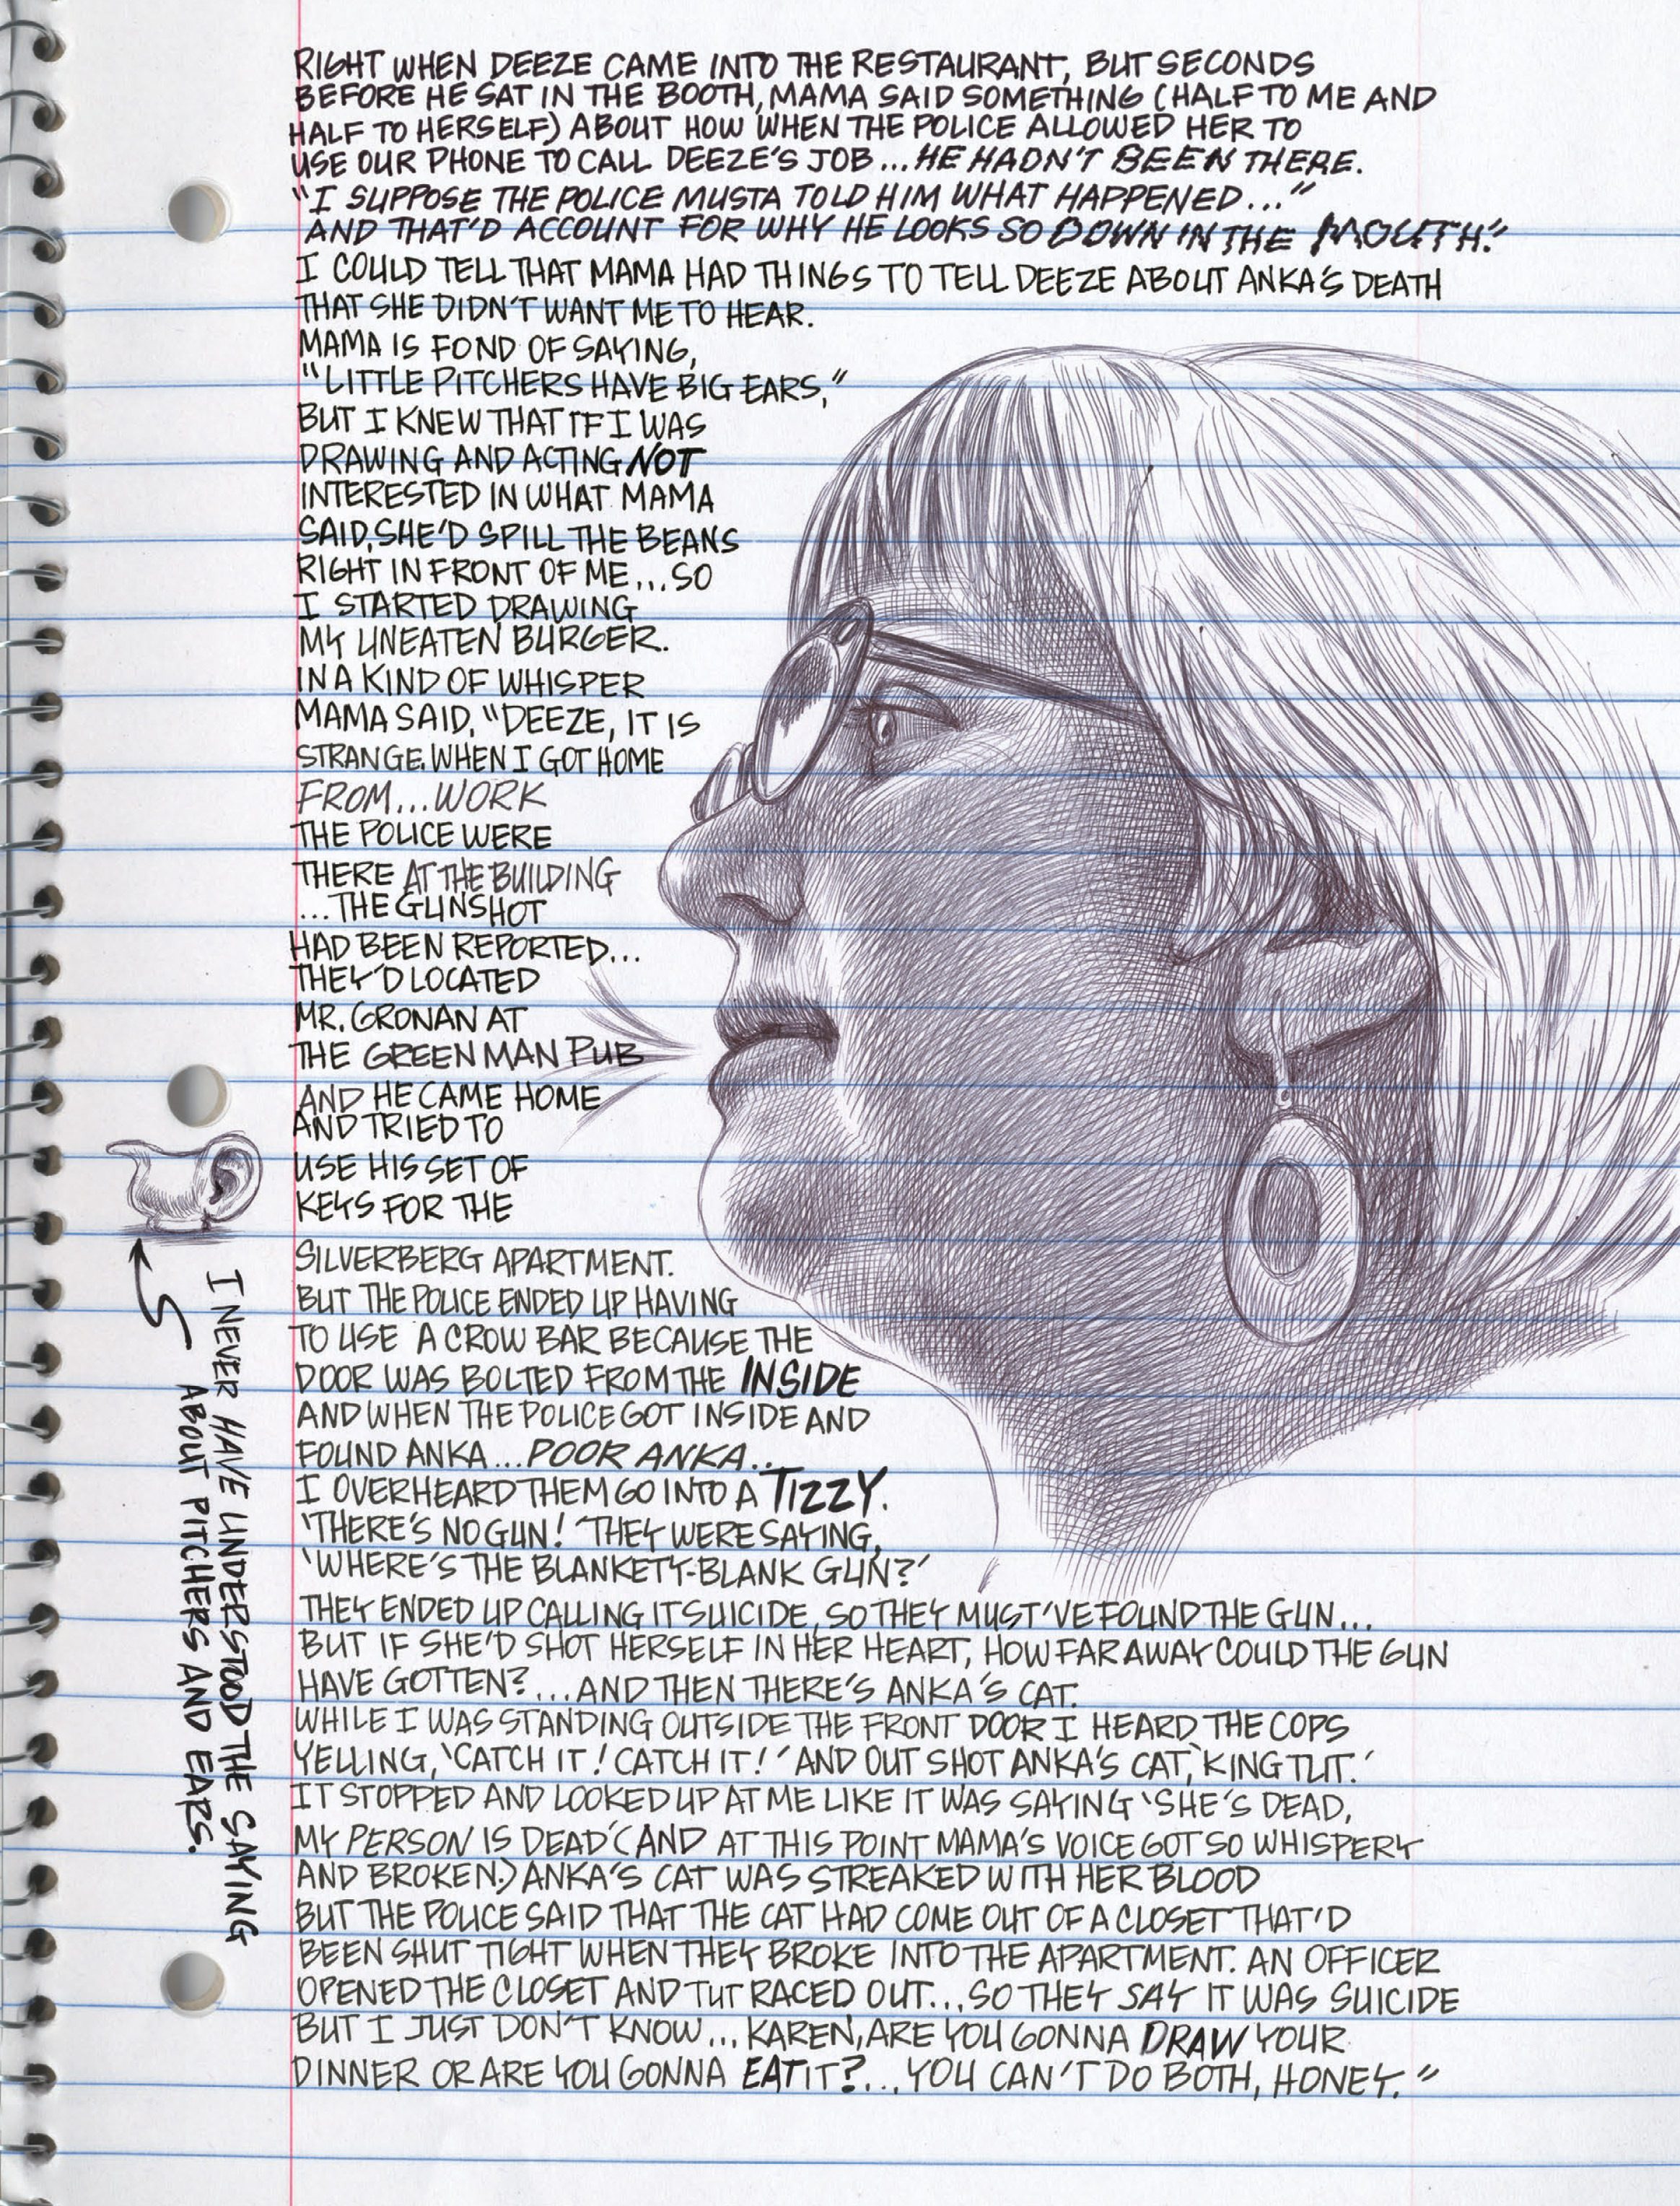 RIGHT WHEN DEEZE CAME INTO THE RESTAURANT, BUT SECONDS
BEFORE HE SAT IN THE BOOTH, MAMA SAID SOMETHING (HALF TO ME AND
HALF TO HERSELF) ABOUT HOW WHEN THE POLICE ALLOWED HER TO
USE OUR PHONE TO CALL DEEZE'S JOB... HE HADN'T BEEN THERE.
"I SUPPOSE THE POLICE MUSTA TOLD HIM WHAT HAPPENED..."
AND THAT'D ACCOUNT FOR WHY HE LOOKS SO DOWN IN THE MOUTH."
I COULD TELL THAT MAMA HAD THINGS TO TELL DEEZE ABOUT ANKA'S DEATH
THAT SHE DIDN'T WANT ME TO HEAR.
MAMA IS FOND OF SAYING,
"LITTLE PITCHERS HAVE BIG EARS,"
BUT I KNEW THAT IF I WAS
DRAWING AND ACTING NOT
INTERESTED IN WHAT MAMA
SAID, SHE'D SPILL THE BEANS
RIGHT IN FRONT OF ME...SO
I STARTED DRAWING
MY UNEATEN BURGER.
IN A KIND OF WHISPER
MAMA SAID, "DEEZE, IT IS
STRANGE. WHEN I GOT HOME
FROM...WORK
THE POLICE WERE
THERE AT THE BUILDING
...THE GUNSHOT
HAD BEEN REPORTED...
THEY'D LOCATED
MR. GRONAN AT
THE GREEN MAN PUB
AND HE CAME HOME
AND TRIED TO
USE HIS SET OF
KEYS FOR THE
SILVERBERG APARTMENT.
BUT THE POLICE ENDED UP HAVING
TO USE A CROW BAR BECAUSE THE
DOOR WAS BOLTED FROM THE INSIDE
AND WHEN THE POLICE GOT INSIDE AND
FOUND ANKA...POOR ANKA...
I OVERHEARD THEM GO INTO A TIZZY.
'THERE'S NO GUN!' THEY WERE SAYING,
'WHERE'S THE BLANKETY-BLANK GUN?'
THEY ENDED UP CALLING IT SUICIDE, SO THEY MUST'VE FOUND THE GUN...
BUT IF SHE'D SHOT HERSELF IN HER HEART, HOW FAR AWAY COULD THE GUN
HAVE GOTTEN?...AND THEN THERE'S ANKA'S CAT.
WHILE I WAS STANDING OUTSIDE THE FRONT DOOR I HEARD THE COPS
YELLING, 'CATCH IT! CATCH IT!' AND OUT SHOT ANKA'S CAT, 'KING TUT.'
IT STOPPED AND LOOKED UP AT ME LIKE IT WAS SAYING 'SHE'S DEAD,
MY PERSON IS DEAD' (AND AT THIS POINT MAMA'S VOICE GOT SO WHISPERY
AND BROKEN.) ANKA'S CAT WAS STREAKED WITH HER BLOOD
BUT THE POLICE SAID THAT THE CAT HAD COME OUT OF A CLOSET THAT'D
BEEN SHUT TIGHT WHEN THEY BROKE INTO THE APARTMENT. AN OFFICER
OPENED THE CLOSET AND TUT RACED OUT...SO THEY SAY IT WAS SUICIDE
BUT I JUST DON'T KNOW... KAREN, ARE YOU GONNA DRAW YOUR
DINNER OR ARE YOU GONNA EAT IT?...YOU CAN'T DO BOTH, HONEY."
I NEVER HAVE UNDERSTOOD THE SAYING
ABOUT PITCHERS AND EARS.